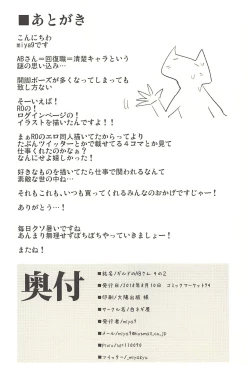 ■あとがき
こんにちわ
miya9です
ABさん＝回復職＝清楚キャラという
謎の思い込み…
開脚ポーズが多くなってしまっても
致し方ない
そーいえば！
ROの！
ログインページの！
イラストを描いたんですよ！！
まぁROのエロ同人描いてたからってより
たぶんツイッターとかで載せてる４コマとか見て
仕事くれたのかなぁ？
なんにせよ嬉しかった！
好きなものを描いてたら仕事で関われるなんて
素敵な世の中ね…
それもこれも、いつも買ってくれるみんなのおかげですじゃー！
ありがとう…！
毎日クソ暑いですね
あんまり無理せずぼちぼちやっていきましょー！
またね！
奥付
■誌名/ギルドの姐さん その2
■発行日/2018年8月10日 コミックマーケット94
■印刷/太陽出版 様
■サークル名/白ネギ屋
■発行者/miya9
■メール/miya9@hotmail.co.jp
■Pixiv/
■ツイッター/_miyakyu